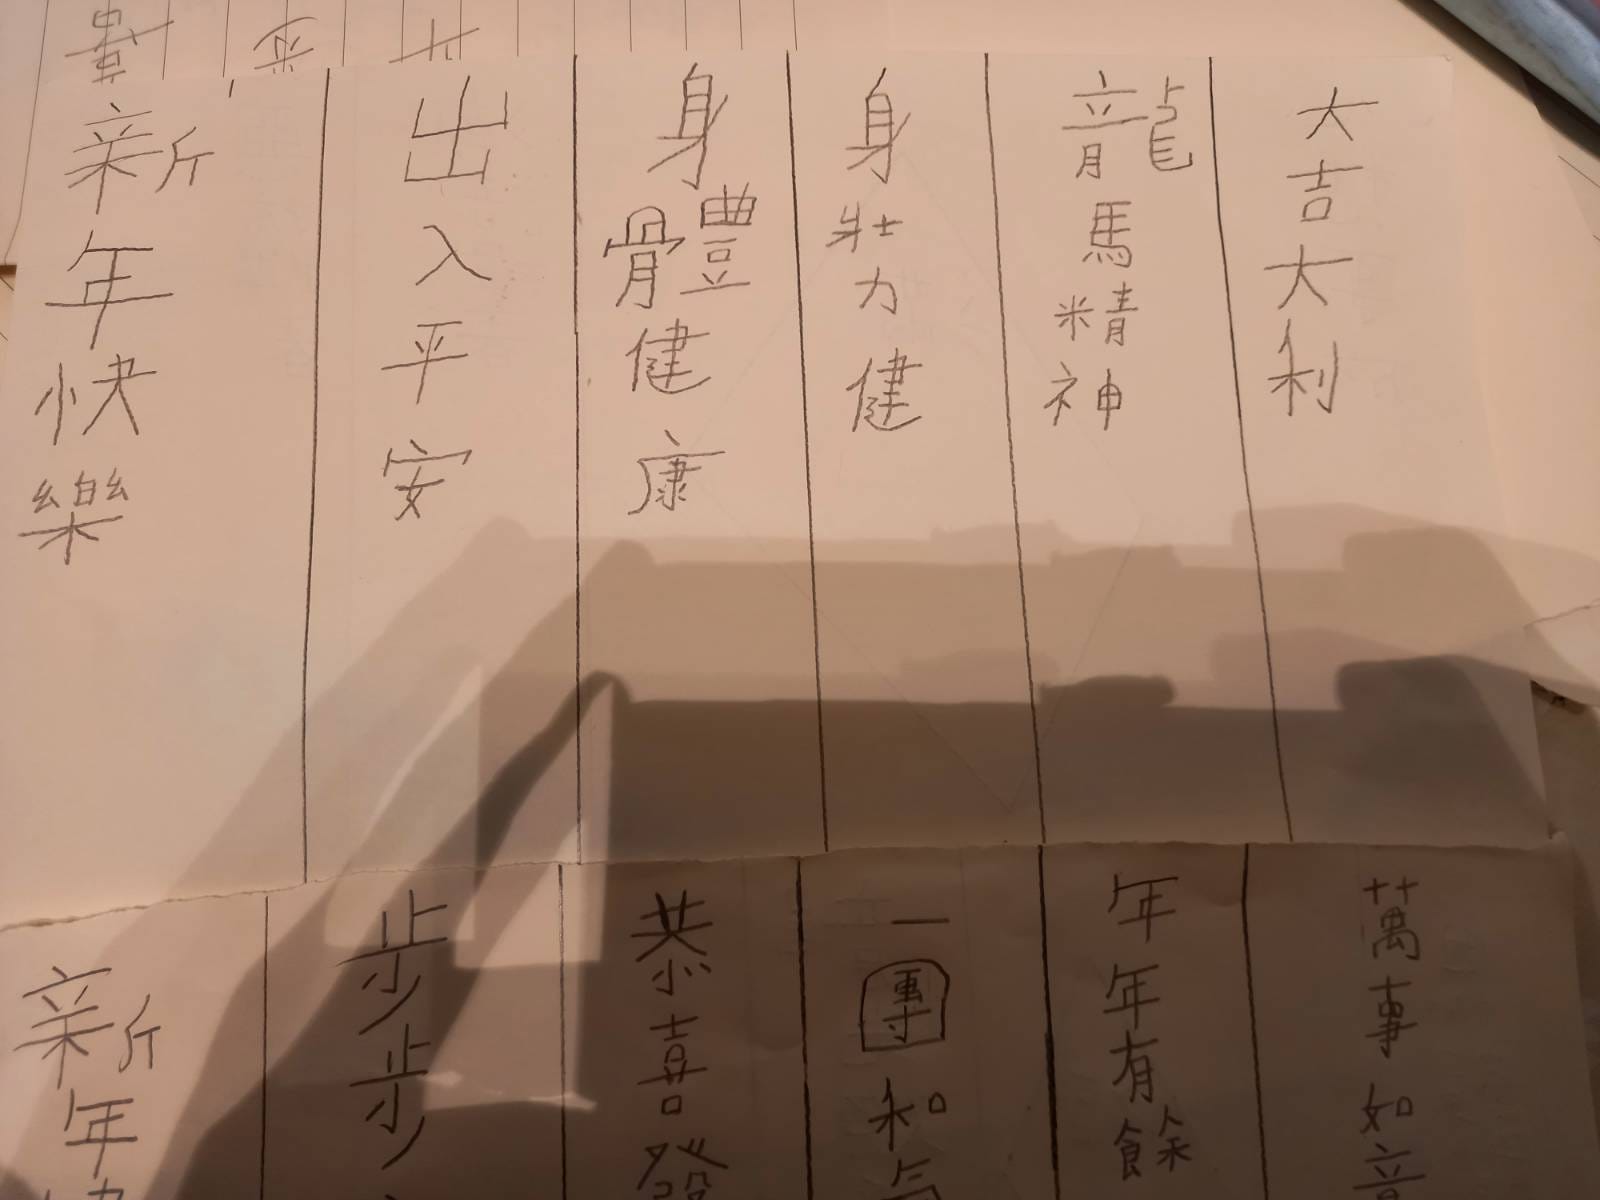 大吉大利
龍馬精神
身壯力健
身體健康
出入平安
新年快樂
萬事如意
年年有餘
一團和气
恭喜發
步步
新年快